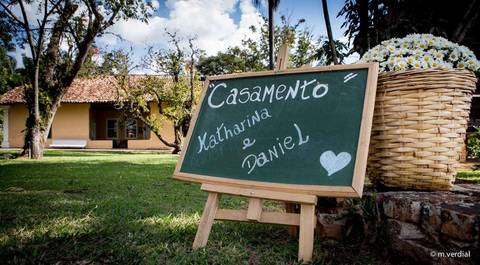 "Casamento"
Katharina
e
Daniel
© m.verdial